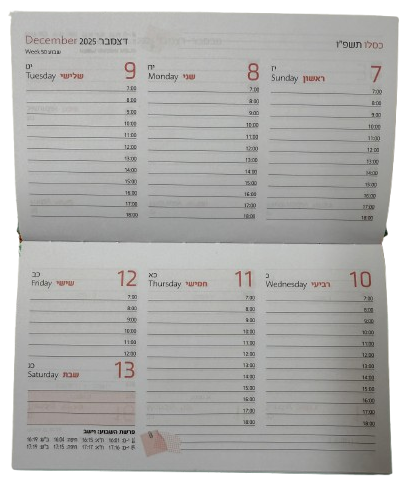 כסלו תשפ"ו
December 2025 דצמבר
Week 50 שבוע
7
יז
Sunday ראשון
7:00
8:00
9:00
10:00
11:00
12:00
13:00
14:00
15:00
16:00
17:00
18:00
8
יח
Monday שני
7:00
8:00
9:00
10:00
11:00
12:00
13:00
14:00
15:00
16:00
17:00
18:00
9
יט
Tuesday שלישי
7:00
8:00
9:00
10:00
11:00
12:00
13:00
14:00
15:00
16:00
17:00
18:00
10
כ
Wednesday רביעי
7:00
8:00
9:00
10:00
11:00
12:00
13:00
14:00
15:00
16:00
17:00
18:00
11
כא
Thursday חמישי
7:00
8:00
9:00
10:00
11:00
12:00
13:00
14:00
15:00
16:00
17:00
18:00
12
כב
Friday שישי
7:00
8:00
9:00
10:00
11:00
12:00
13
כג
Saturday שבת
פרשת השבוע: וישב
16:01 ת"א 16:15 חיפה 16:04 ב"ש 16:19
17:16 ת"א 17:17 חיפה 17:15 ב"ש 17:19